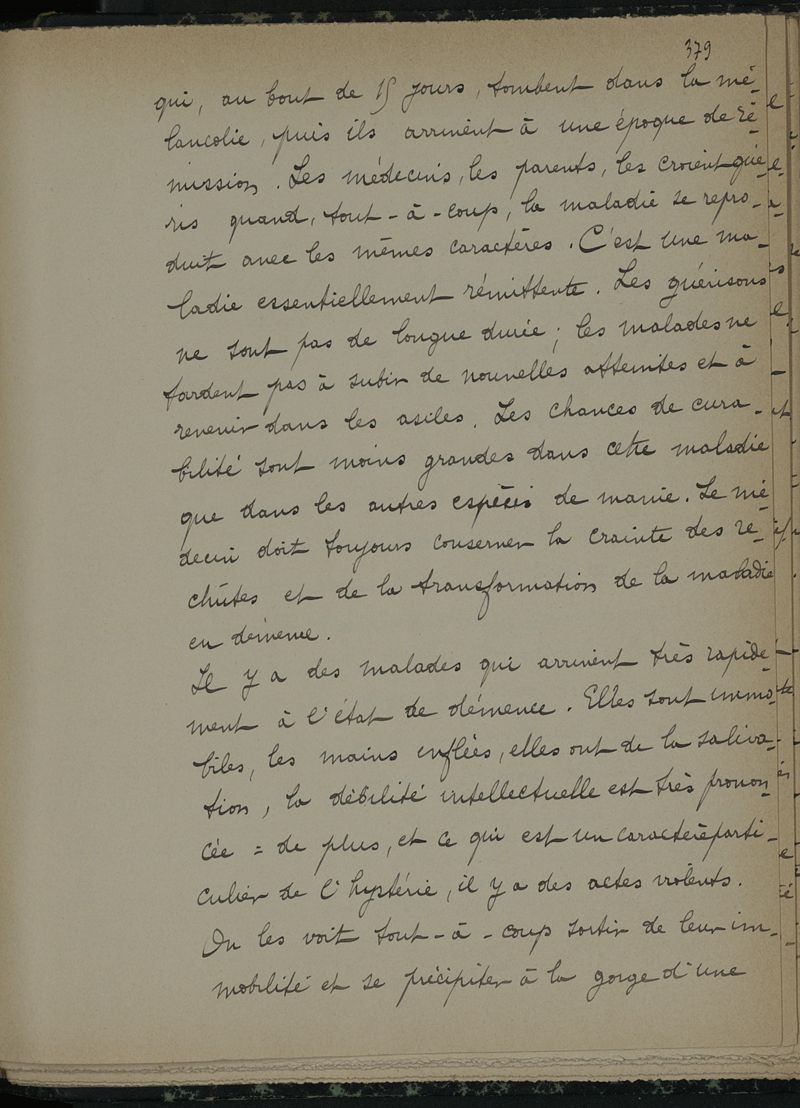 379
qui, au bout de 15 jours, tombent dans la mé-
lancolie, puis ils arrivent à une époque de ré-
mission. Les médecins, les parents, les croient gué-
ris quand, tout-à-coup, la maladie se repro-
duit avec les mêmes caractères. C'est une ma-
ladie essentiellement rémittente. Les guérisons
ne sont pas de longue durée ; les malades ne
tardent pas à subir de nouvelles atteintes et à
revenir dans les asiles. Les chances de cura-
bilité sont moins grandes dans cette maladie
que dans les autres espèces de manie. Le mé-
decin doit toujours conserver la crainte des re-
chûtes et de la transformation de la maladie
en démence.
Il y a des malades qui arrivent très rapide-
ment à l'état de démence. Elles sont immo-
biles, les mains enflées, elles ont de la saliva-
tion, la débilité intellectuelle est très pronon-
cée = de plus, et ce qui est un caractère parti-
culier de l'hystérie, il y a des actes violents.
On les voit tout-à-coup sortir de leur im-
mobilité et se précipiter à la gorge d'une